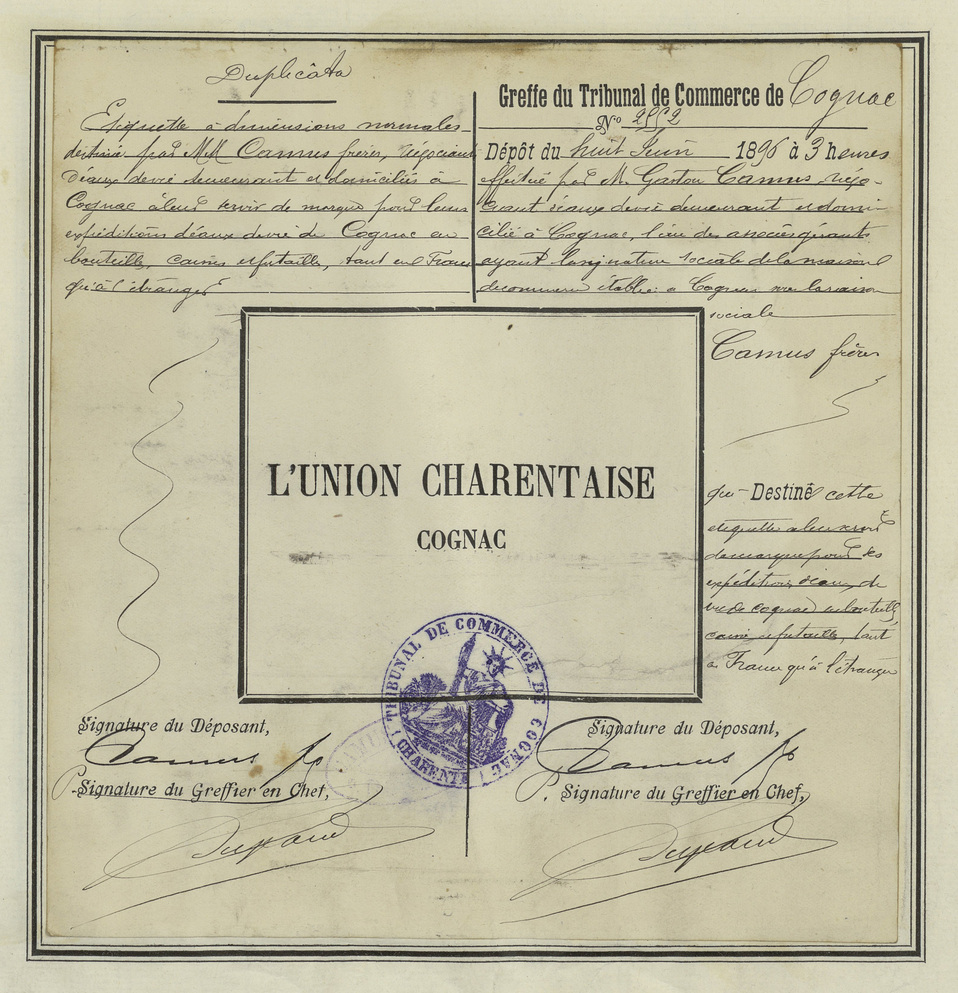 Duplicata
Etiquette à dimensions normales
destinée par MM Camus frères, négociants
d'eaux devie demeurant et domiciliés à
Cognac à leur servir de marque pour leurs
expéditions d'eaux devie de Cognac en
bouteilles, caisses et futailles, tant en France
qu'à l'étranger
Greffe du Tribunal de Commerce de Cognac
N°
Dépôt du huit Juin 1896 à 3 heures
effectué par M. Gaston Camus négo-
ciant d'eaux devie demeurant et domi
cilié à Cognac, l'un des associés gérants
ayant la signature sociale de la maison
de commerce établie à Cognac sous la raison
sociale
Camus frères
L'UNION CHARENTAISE
COGNAC
qui Destine cette
etiquette à leur servir
de marque pour les
expéditions d'eaux de
vie de cognac en bouteilles
caisses et futailles, tant
en France qu'à l'étranger
TRIBUNAL DE COMMERCE DE COGNAC
(CHARENTE)
Signature du Déposant,
Camus fs
P. Signature du Greffier en Chef,
Signature du Déposant,
Camus fs
P. Signature du Greffier en Chef,